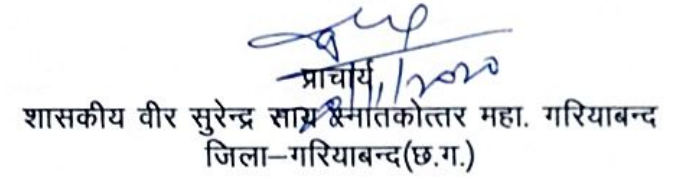 प्राचार्य
शासकीय वीर सुरेन्द्र साय स्नातकोत्तर महा. गरियाबन्द
जिला–गरियाबन्द(छ.ग.)